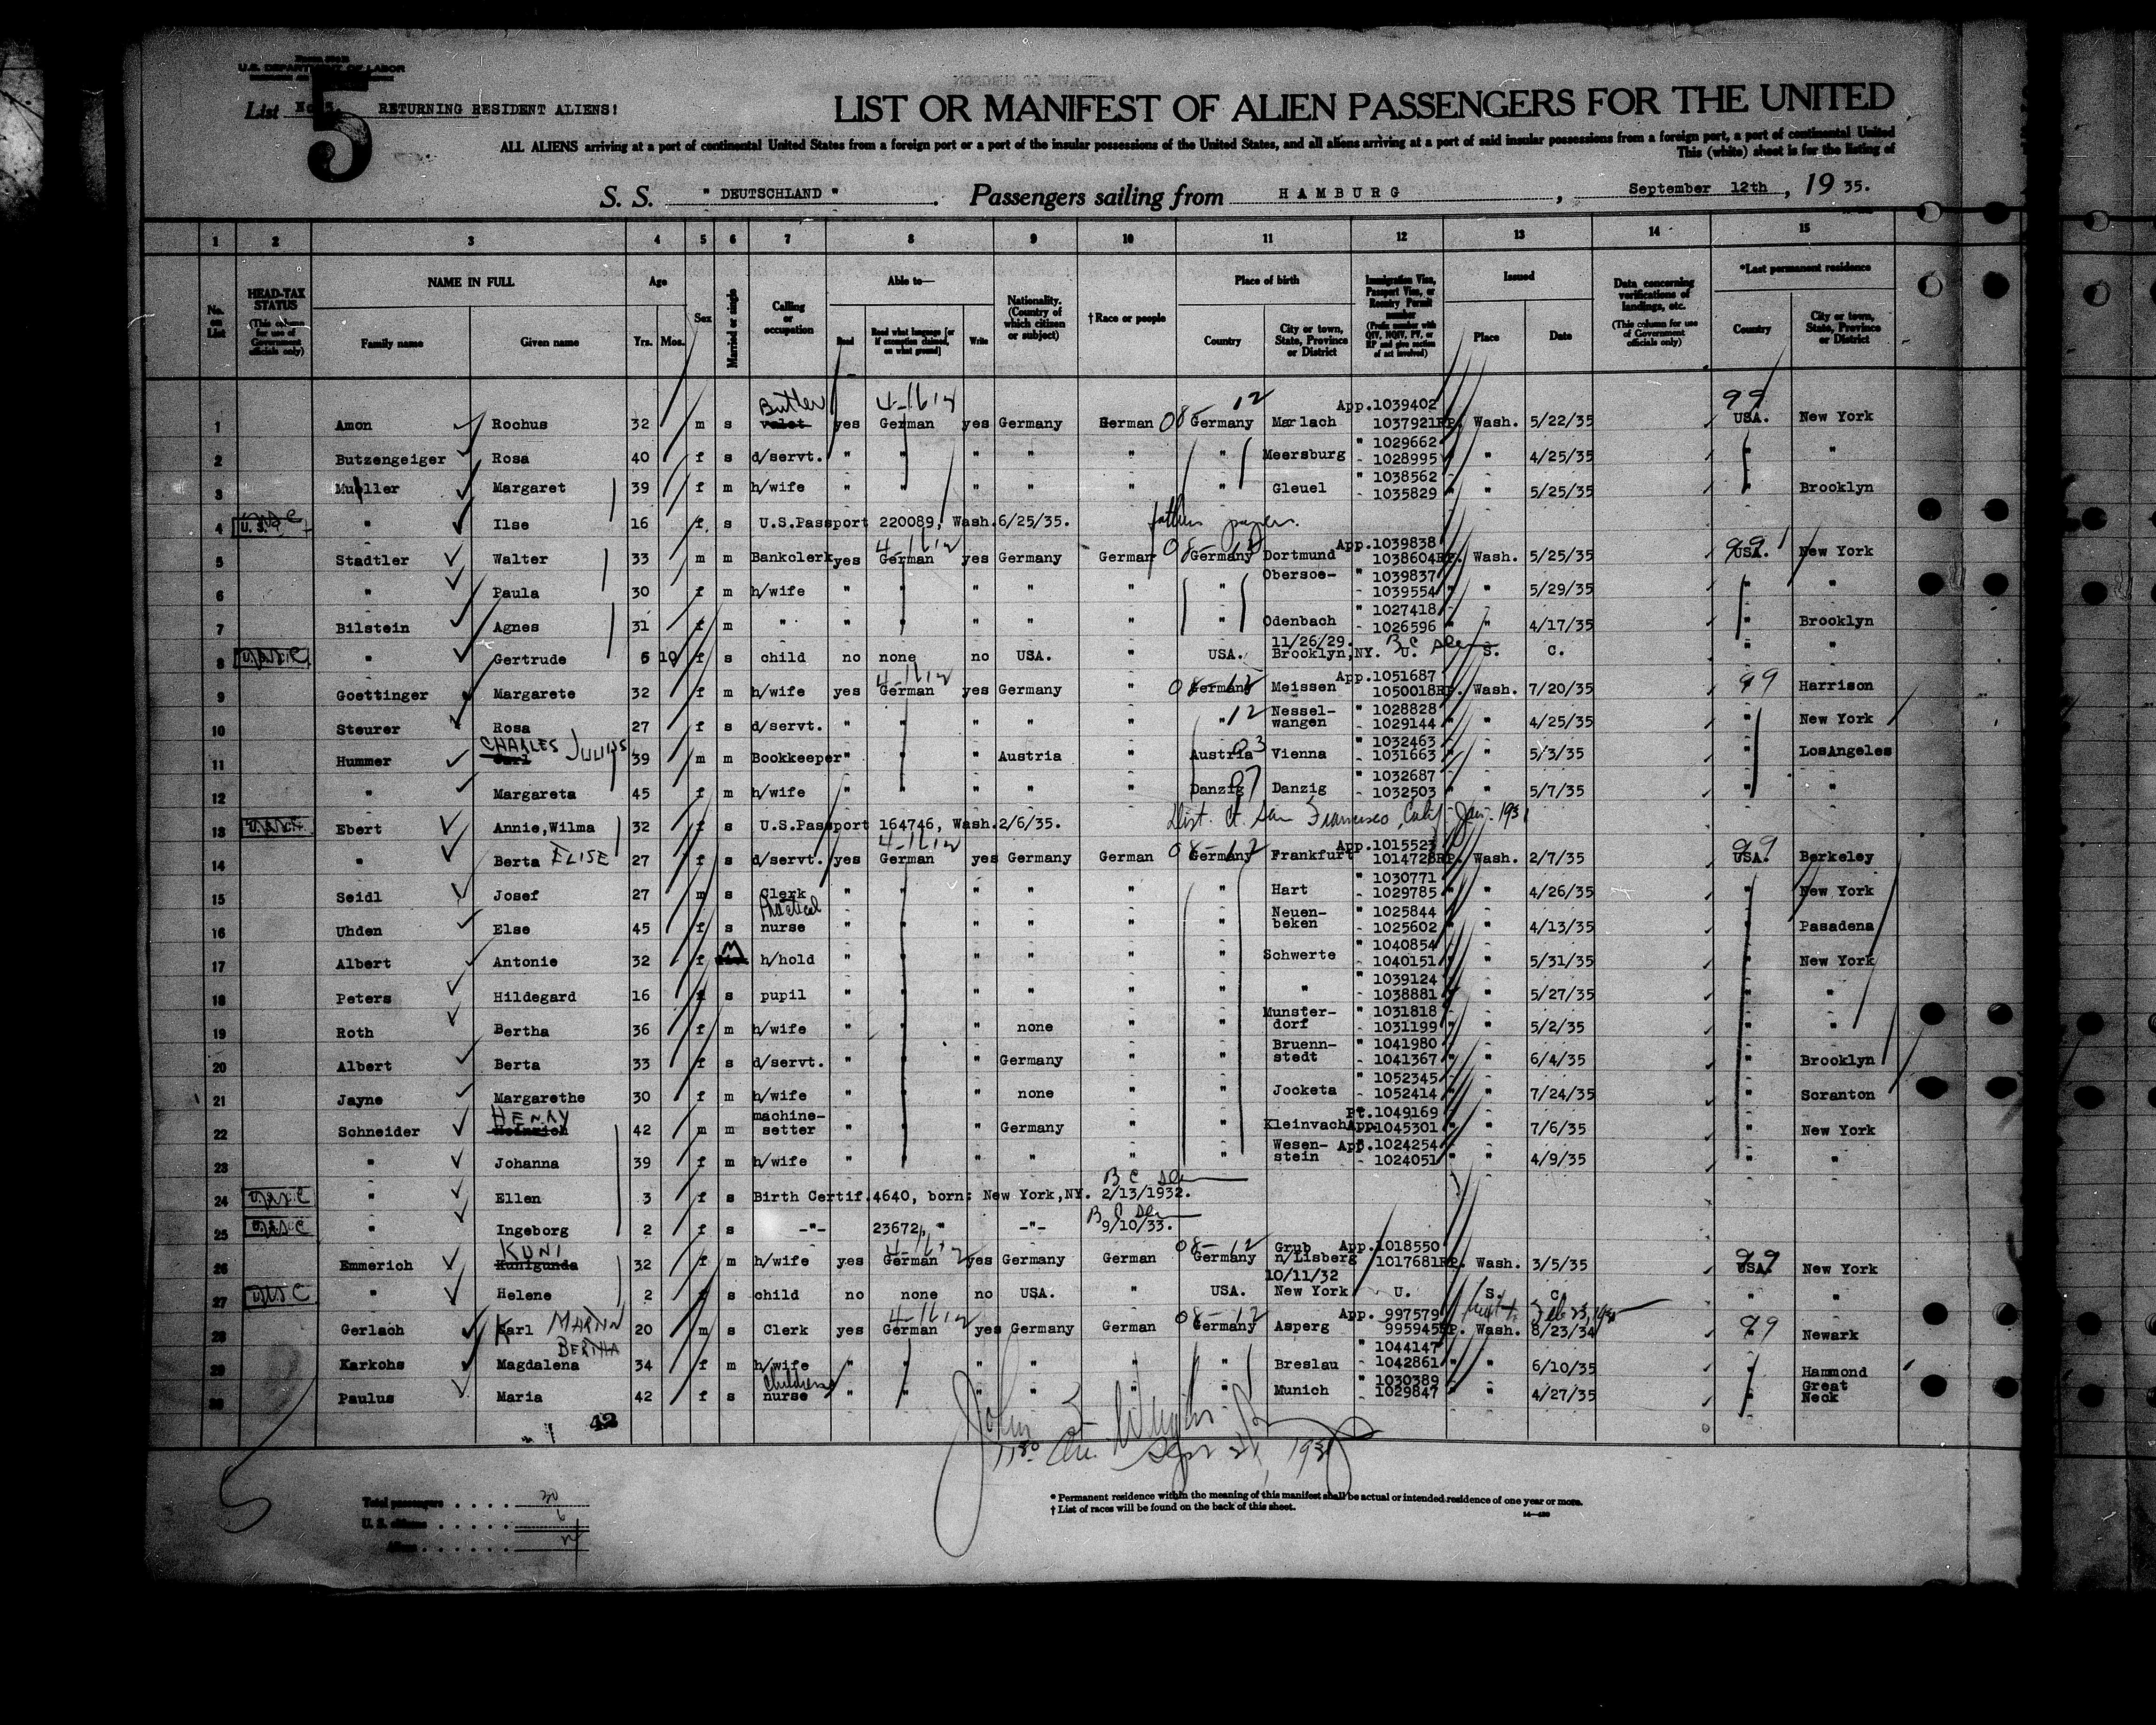 U.S. DEPARTMENT OF LABOR
List No. 5. RETURNING RESIDENT ALIENS!
5
LIST OR MANIFEST OF ALIEN PASSENGERS FOR THE UNITED
ALL ALIENS arriving at a port of continental United States from a foreign port or a port of the insular possessions of the United States, and all aliens arriving at a port of said insular possessions from a foreign port, a port of continental United
This (white) sheet is for the listing of
S. S. " DEUTSCHLAND " . Passengers sailing from HAMBURG , September 12th , 19 35.
1 2 3 4 5 6 7 8 9 10 11 12 13 14 15
No. on List HEAD-TAX STATUS (This column for use of Government officials only) NAME IN FULL Family name Given name Age Yrs. Mos. Sex Married or single Calling or occupation Able to— Read Read what language [or if exemption claimed, on what ground] Write Nationality. (Country of which citizen or subject) † Race or people Place of birth Country City or town, State, Province or District Immigration Visa, Passport Visa, or Reentry Permit number (Prefix number with QIV, NQIV, PV, or RP and give section of act involved) Issued Place Date Data concerning verifications of landings, etc. (This column for use of Government officials only) *Last permanent residence Country City or town, State, Province or District
1 Amon Rochus 32 m s Butler valet yes 4-16 in German yes Germany German 08-12 Germany Marlach App.1039402 1037921RP. Wash. 5/22/35 99 USA. New York
2 Butzengeiger Rosa 40 f s d/servt. " " " " " " Meersburg " 1029662 1028995 " " 4/25/35 " "
3 Mueller Margaret 39 f m h/wife " " " " " " Gleuel " 1038562 1035829 " " 5/25/35 " Brooklyn
4 U.S.C. " Ilse 16 f. s U.S.Passport 220089, Wash.6/25/35. father papers.
5 Stadtler Walter 33 m m Bankclerk yes German yes Germany German 08-12 Germany Dortmund App.1039838 1038604RP. Wash. 5/25/35 99 USA. New York
6 " Paula 30 f m h/wife " " " " " " Obersoe- " 1039837 1039554 " " 5/29/35 " "
7 Bilstein Agnes 31 f m " " " " " " " Odenbach " 1027418 1026596 " " 4/17/35 " Brooklyn
8 " Gertrude 5 10 f s child no none no USA. " USA. 11/26/29. Brooklyn,NY. B C seen U. S. C. " "
9 Goettinger Margarete 32 f m h/wife yes German yes Germany " 08-12 Germany Meissen App.1051687 1050018RP. Wash. 7/20/35 99 Harrison
10 Steurer Rosa 27 f s d/servt. " " " " " " 12 Nessel- wangen " 1028828 1029144 " " 4/25/35 " New York
11 Hummer CHARLES JULIUS Carl 39 m m Bookkeeper " " " Austria " Austria 03 Vienna " 1032463 1031663 " " 5/3/35 " LosAngeles
12 " Margareta 45 f m h/wife " " " " " Danzig 07 Danzig " 1032687 1032503 " " 5/7/35 " "
13 Ebert Annie,Wilma 32 f s U.S.Passport 164746, Wash.2/6/35. Dist. Ct. San Francisco, Calif Jan. 1931
14 " Berta ELISE 27 f s d/servt. yes German yes Germany German 08-12 Germany Frankfurt App.1015523 1014728RP. Wash. 2/7/35 99 USA. Berkeley
15 Seidl Josef 27 m s Clerk " " " " " " Hart " 1030771 1029785 " " 4/26/35 " New York
16 Uhden Else 45 f s Practical nurse " " " " " " Neuen- beken " 1025844 1025602 " " 4/13/35 " Pasadena
17 Albert Antonie 32 f M h/hold " " " " " " Schwerte " 1040854 1040151 " " 5/31/35 " New York
18 Peters Hildegard 16 f s pupil " " " " " " " " 1039124 1038881 " " 5/27/35 " "
19 Roth Bertha 36 f m h/wife " " " none " " Munster- dorf " 1031818 1031199 " " 5/2/35 " "
20 Albert Berta 33 f s d/servt. " " " Germany " " Bruenn- stedt " 1041980 1041367 " " 6/4/35 " Brooklyn
21 Jayne Margarethe 30 f m h/wife " " " none " " Jocketa " 1052345 1052414 " " 7/24/35 " Scranton
22 Schneider HENRY Heinrich 42 m m machine- setter " " " Germany " " Kleinvach Pt.1049169 App.1045301 " " 7/6/35 " New York
23 " Johanna 39 f m h/wife " " " " " " Wesen- stein App.1024254 1024051 " " 4/9/35 " "
24 " Ellen 3 f s Birth Certif.4640, born: New York,NY. 2/13/1932. B C seen
25 " Ingeborg 2 f s -"- 23672, " -"- 9/10/33. B C seen
26 Emmerich KUNI Kunigunda 32 f m h/wife yes German yes Germany German 08-12 Germany Grub n/Lisberg App.1018550 1017681RP. Wash. 3/5/35 99 USA. New York
27 USC " Helene 2 f s child no none no USA. " USA. 10/11/32 New York U. S. C. " "
28 Gerlach Karl MARTIN 20 m s Clerk yes German yes Germany German 08-12 Germany Asperg App. 997579 995945RP. Wash. 8/23/34 99 Newark
29 Karkohs Magdalena BERTHA 34 f m h/wife " " " " " " Breslau " 1044147 1042861 " " 6/10/35 " Hammond
30 Paulus Maria 42 f s Childrens nurse " " " " " " Munich " 1030389 1029847 " " 4/27/35 " Great Neck
42
Total passengers . . . . 30
U. S. citizens . . . . . 6
Aliens . . . . . . 24
* Permanent residence within the meaning of this manifest shall be actual or intended residence of one year or more.
† List of races will be found on the back of this sheet.